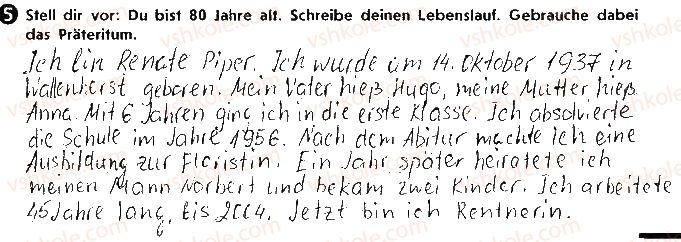 5 Stell dir vor: Du bist 80 Jahre alt. Schreibe deinen Lebenslauf. Gebrauche dabei
das Präteritum.
Ich bin Renate Piper. Ich wurde am 14. Oktober 1937 in
Wallenhorst geboren. Mein Vater hieß Hugo, meine Mutter hieß
Anna. Mit 6 Jahren ging ich in die erste Klasse. Ich absolvierte
die Schule im Jahre 1956. Nach dem Abitur machte ich eine
Ausbildung zur Floristin. Ein Jahr später heiratete ich
meinen Mann Norbert und bekam zwei Kinder. Ich arbeitete
45 Jahre lang, bis 2004. Jetzt bin ich Rentnerin.
6